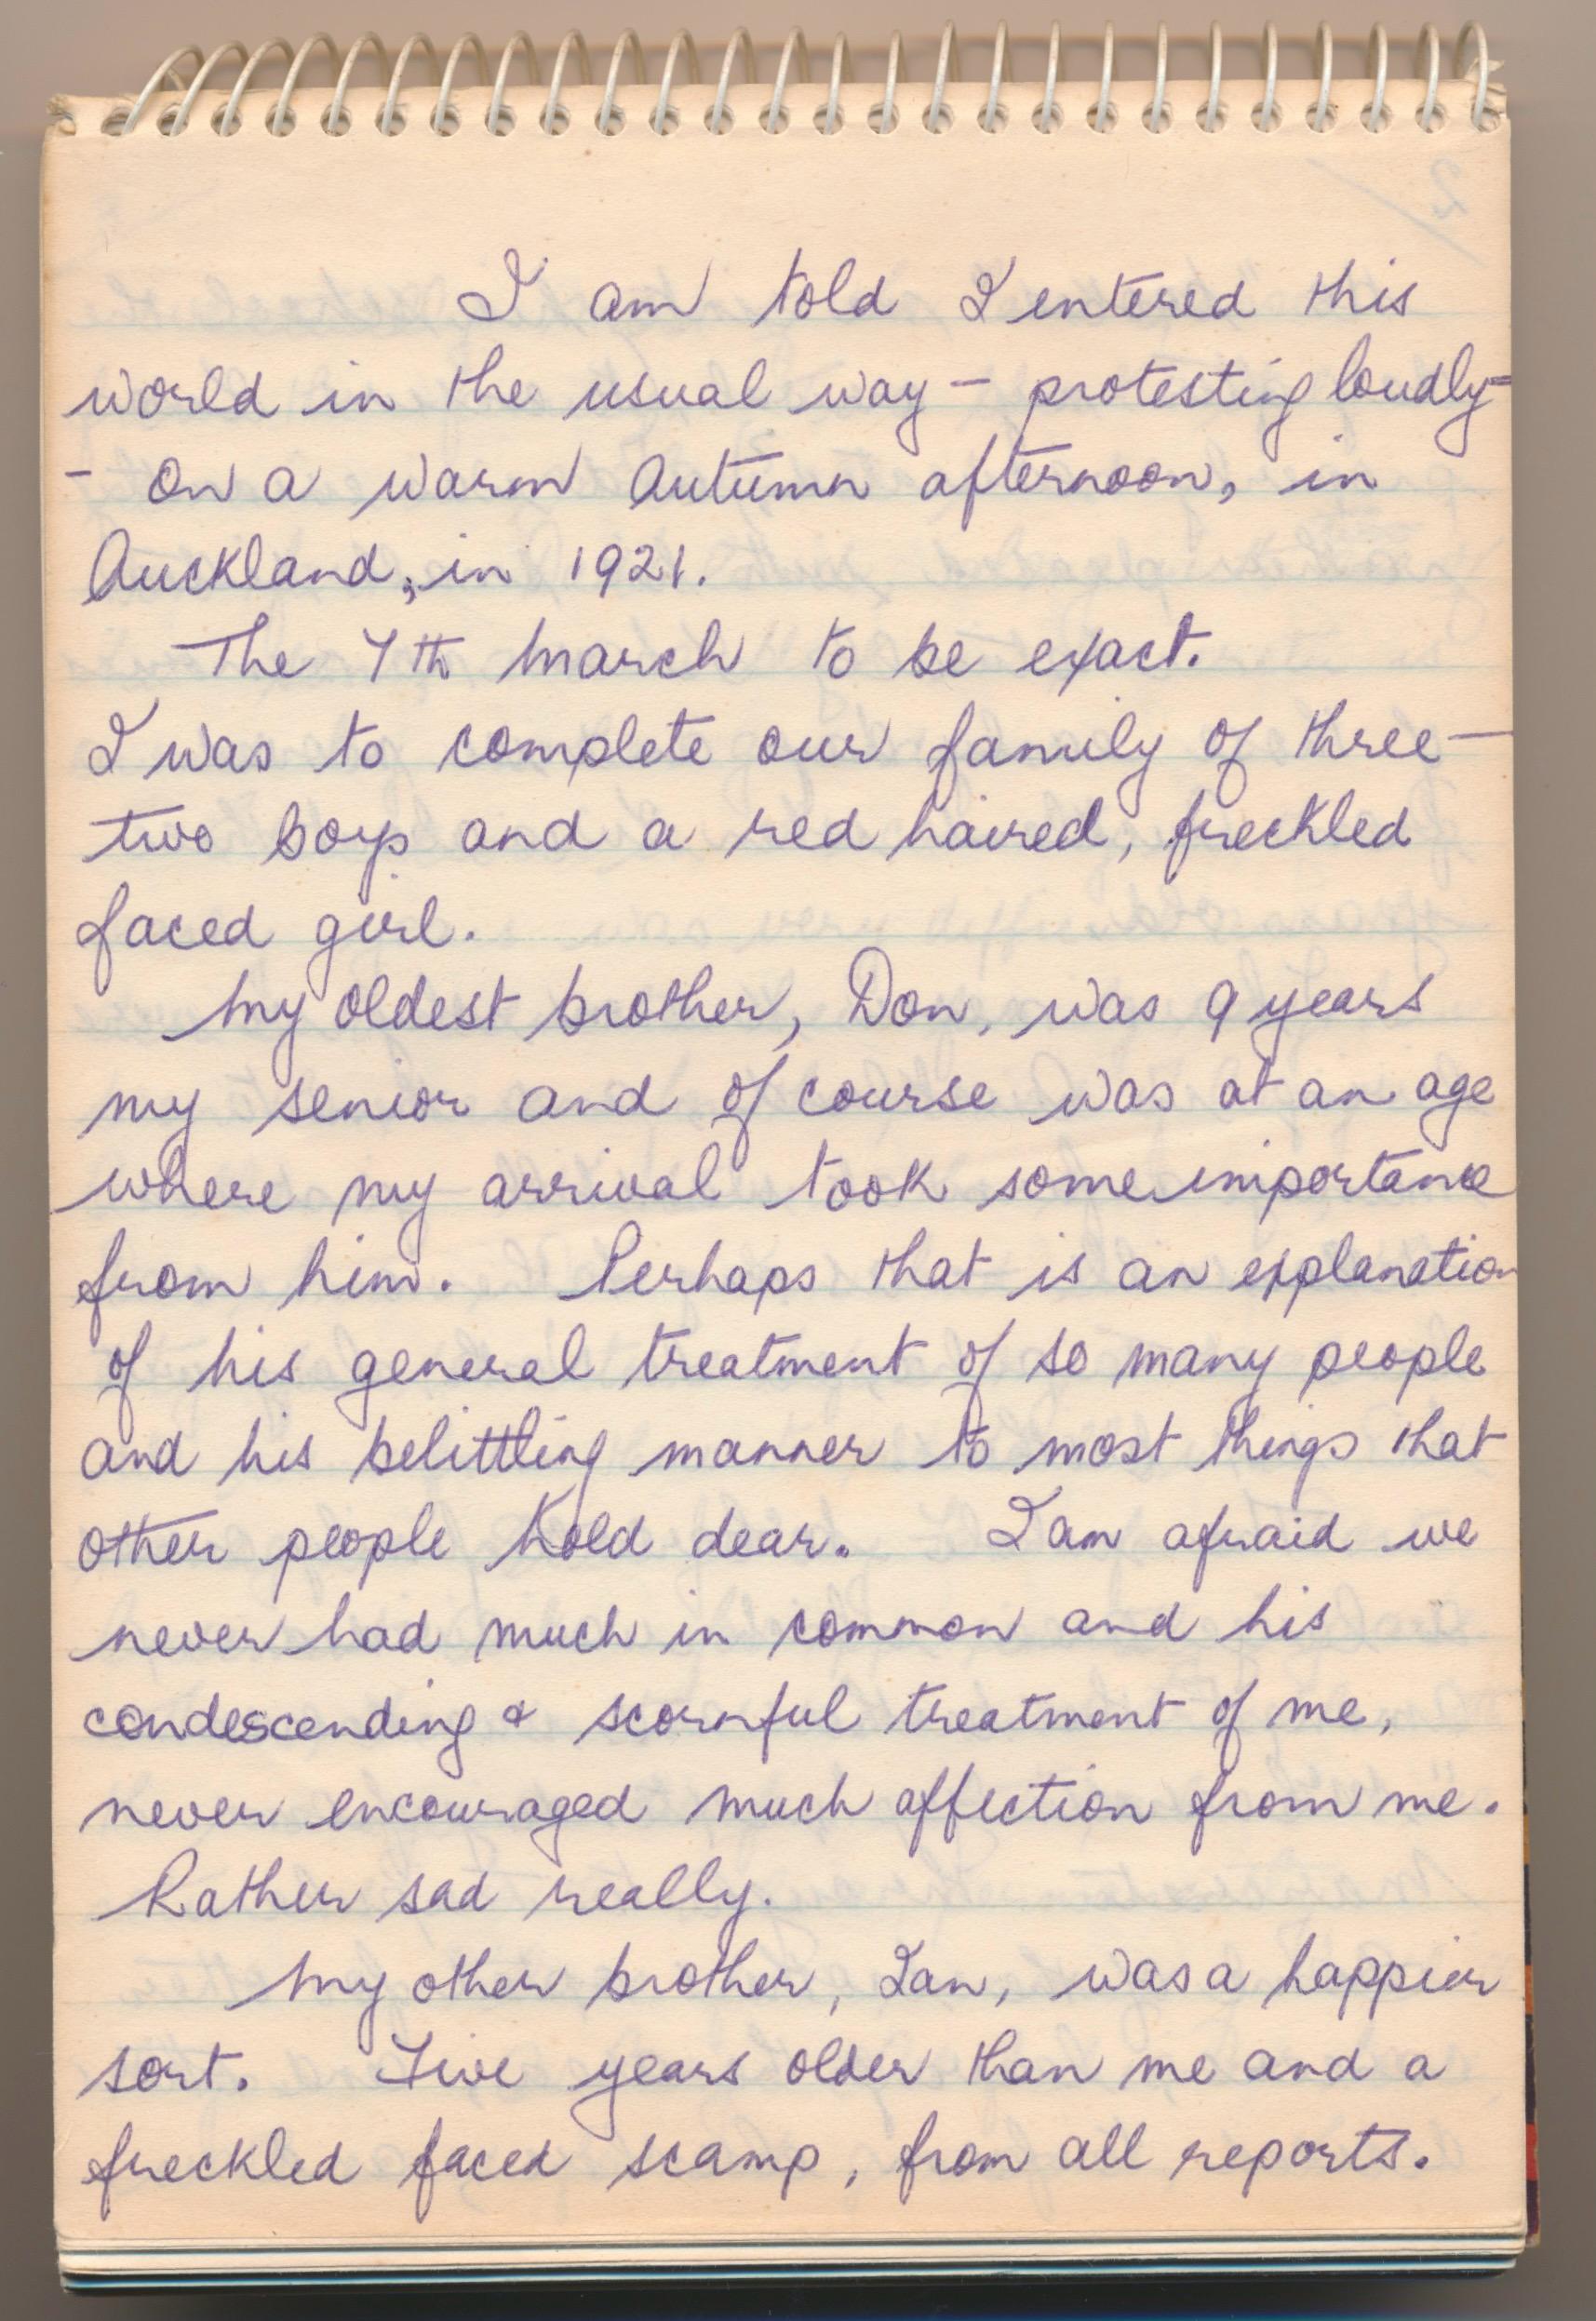 I am told I entered this
world in the usual way - protesting loudly -
- on a warm Autumn afternoon, in
Auckland, in 1921.
The 7th March to be exact.
I was to complete our family of three -
two boys and a red haired, freckled
faced girl.
My oldest brother, Don, was 9 years
my senior and of course was at an age
where my arrival took some importance
from him. Perhaps that is an explanation
of his general treatment of so many people
and his belittling manner to most things that
other people hold dear. I am afraid we
never had much in common and his
condescending & scornful treatment of me,
never encouraged much affection from me.
Rather sad really.
My other brother, Ian, was a happier
sort. Five years older than me and a
freckled faced scamp, from all reports.